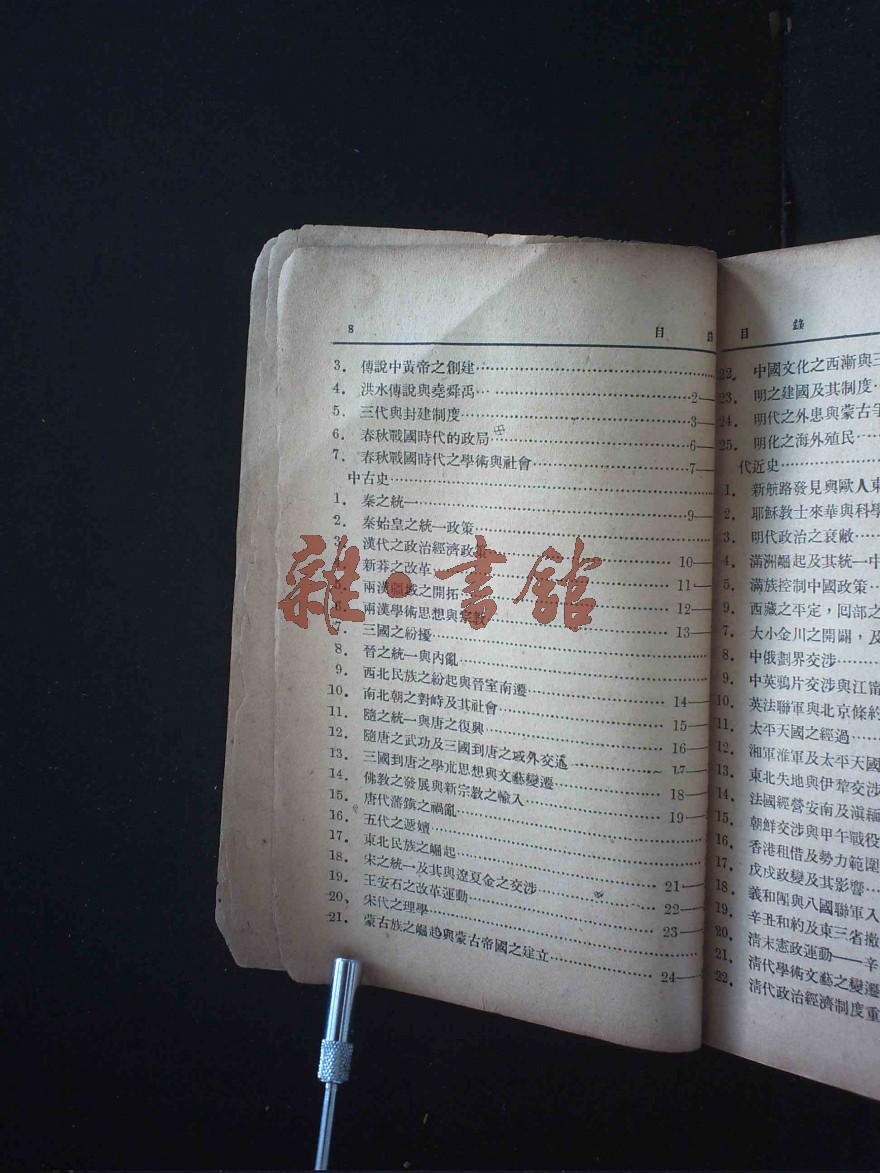 8 目 錄
3. 傳說中黃帝之創建
4. 洪水傳說與堯舜禹 2—
5. 三代與封建制度 3—
6. 春秋戰國時代的政局 6—
7. 春秋戰國時代之學術與社會 7—
中古史
1. 秦之統一 9—
2. 秦始皇之統一政策
3. 漢代之政治經濟政策 10—
4. 新莽之改革 11—
5. 兩漢疆域之開拓 12—
6. 兩漢學術思想與宗教 13—
7. 三國之紛擾
8. 晉之統一與內亂
9. 西北民族之紛起與晉室南遷 14—
10. 南北朝之對峙及其社會 15—
11. 隨之統一與唐之復興 16—
12. 隨唐之武功及三國到唐之域外交通 17—
13. 三國到唐之學朮思想與文藝變遷 18—
14. 佛教之發展與新宗教之輸入 19—
15. 唐代藩鎮之禍亂
16. 五代之遞嬗
17. 東北民族之崛起
18. 宋之統一及其與遼夏金之交涉 21—
19. 王安石之改革運動 22—
20. 宋代之理學 23—
21. 蒙古族之崛起與蒙古帝國之建立 24—
目 錄
22. 中國文化之西漸與
23. 明之建國及其制度
24. 明代之外患與蒙古
25. 明化之海外殖民
代近史
1. 新航路發見與歐人東
2. 耶穌教士來華與科學
3. 明代政治之衰敝
4. 滿洲崛起及其統一中
5. 滿族控制中國政策
9. 西藏之平定，回部之
7. 大小金川之開闢，及
8. 中俄劃界交涉
9. 中英鴉片交涉與江甯
10. 英法聯軍與北京條約
11. 太平天國之經過
12. 湘軍淮軍及太平天國
13. 東北失地與伊犂交涉
14. 法國經營安南及滇緬
15. 朝鮮交涉與甲午戰役
16. 香港租借及勢力範圍
17. 戊戌政變及其影響
18. 義和團與八國聯軍入
19. 辛丑和約及東三省撤
20. 清末憲政運動——辛
21. 清代學術文藝之變遷
22. 清代政治經濟制度重
雜·書館